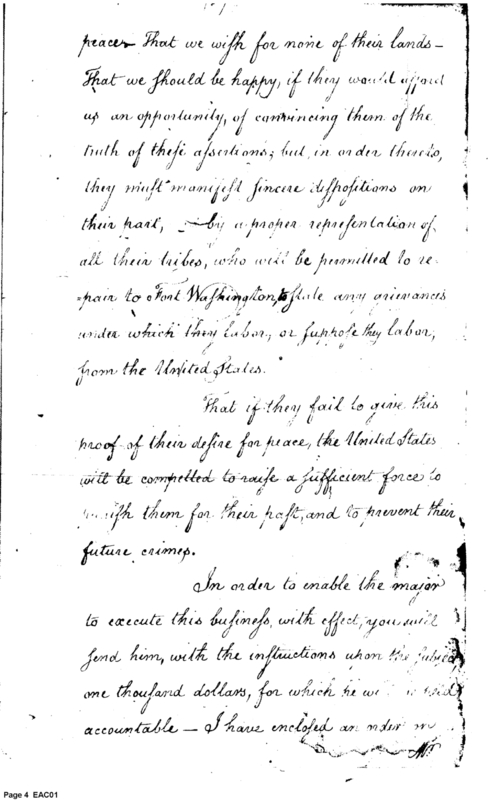 peace – That we wish for none of their lands –
That we should be happy, if they would afford
us an opportunity, of convincing them of the
truth of these assertions; but in order thereto,
they must manifest sincere dispositions on
their part, – by a proper representation of
all their tribes, who will be permitted to re-
=pair to Fort Washington, to state any grievances
under which they labor, or suppose they labor,
from the United States.
That if they fail to give this
proof of their desire for peace, the United States
will be compelled to raise a sufficient force to
punish them for their past, and to prevent their
future crimes.
In order to enable the major
to execute this business, with effect, you will
send him, with the instructions upon the subject,
one thousand dollars, for which he will be held
accountable – I have enclosed an order
Page 4 EAC01